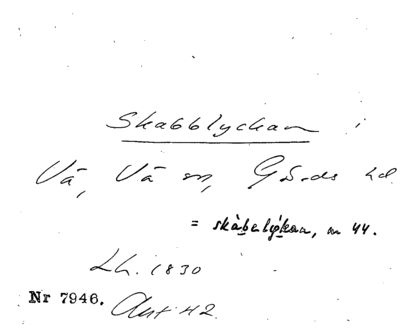 Skabblyckan i
Vä, Vä sn, Gärds hd.
= skàbalỳkan, m 44.
Lh. 1830
Nr 7946. Ant 42